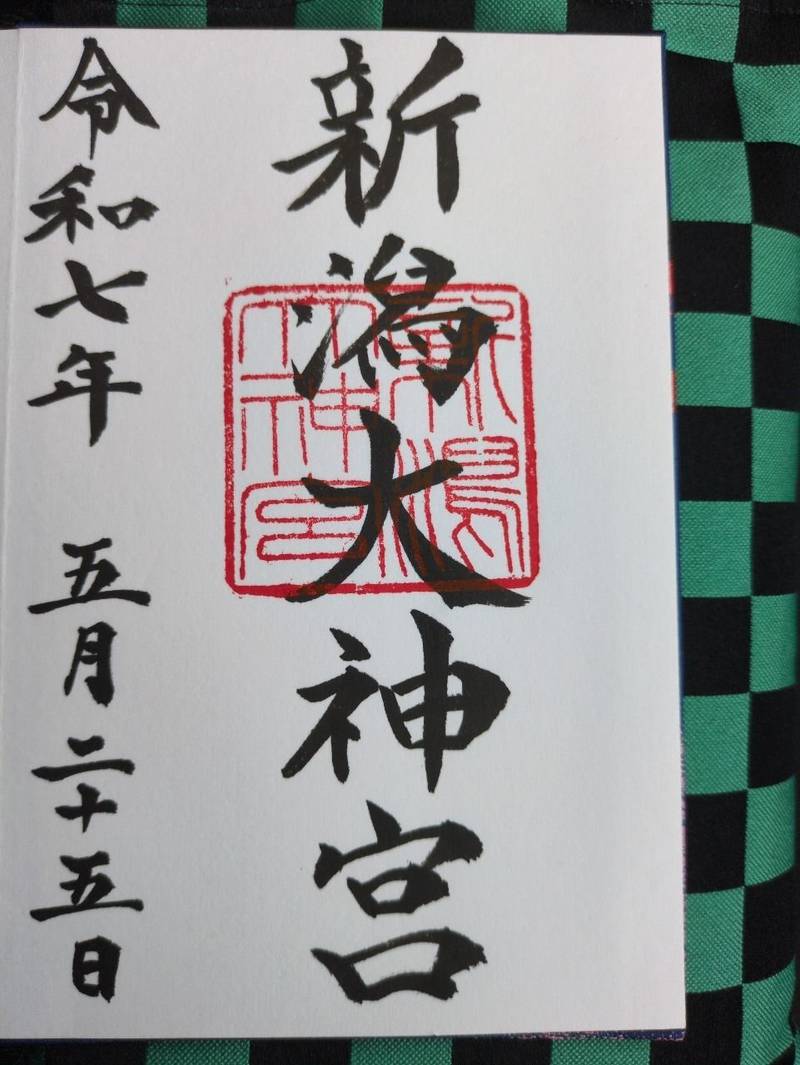 新潟大神宮
新潟
大神宮
令和七年 五月二十五日